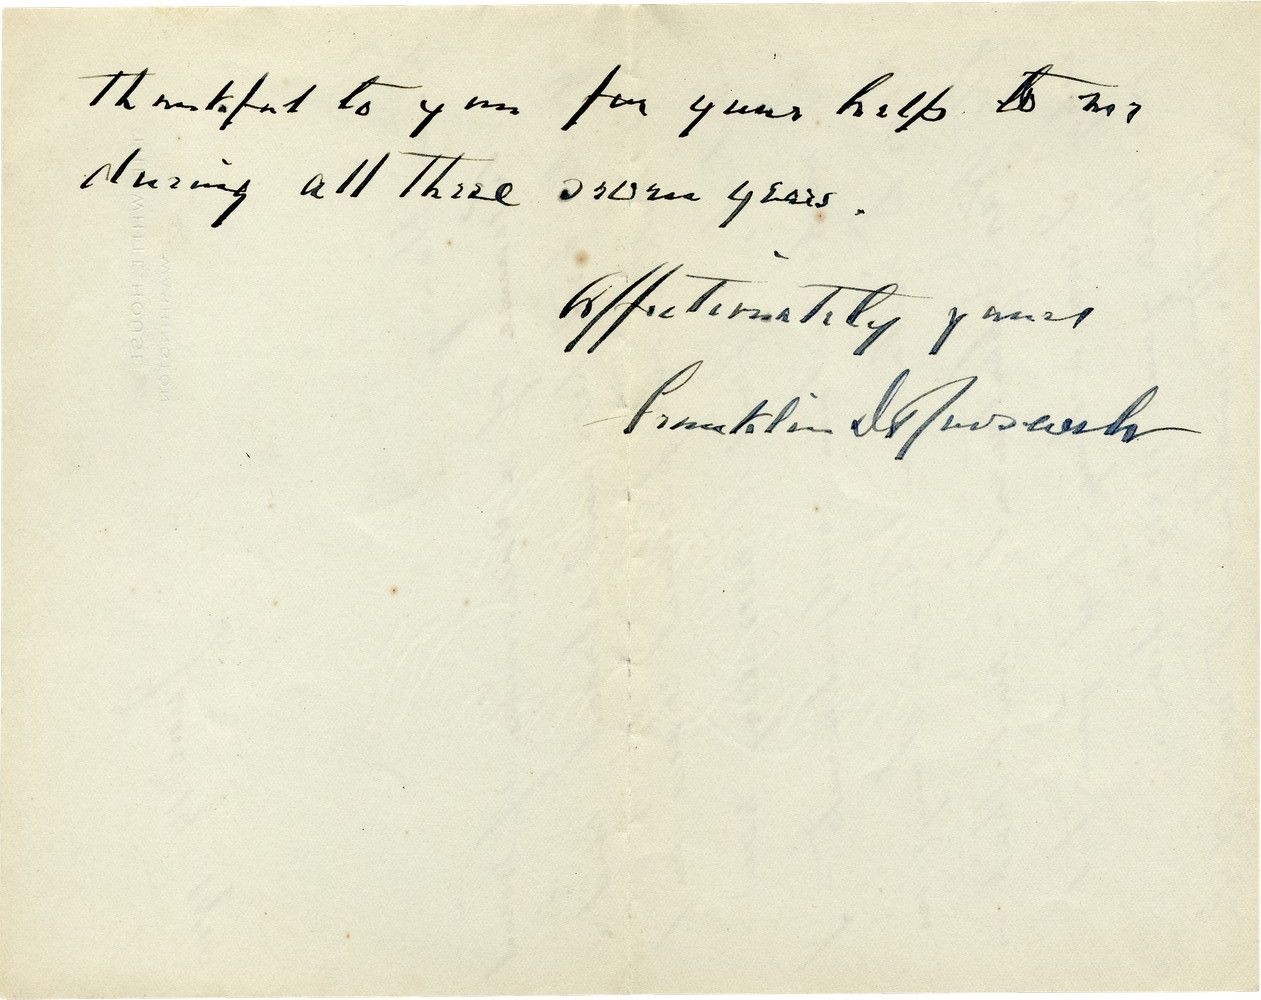 thankful to you for your help to me
during all these seven years.
Affectionately yours
Franklin D Roosevelt
THE WHITE HOUSE
WASHINGTON